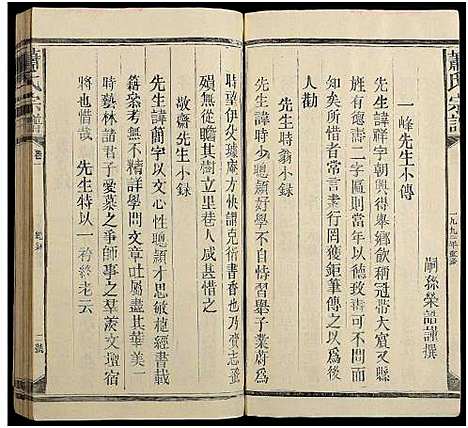 蕭氏宗譜
一九九二年重修
一峰先生小傳
嗣孫榮誥謹撰
先生諱祥字朝興得舉鄉飲稱冠帶大賓又縣
姓有德壽二字區則當年以德政壽可不問
知矣所惜者常言行罔獲鉅筆傳之以為後
人勸
先生時翁小录
先生諱時少聰穎好學不自恃習舉子業蔚為
時望伊尖璩庵方快讀克衍書香也奈賫志
殞無從瞻其樹立里巷人咸甚惜之
敬齋先生小録
先生諱蘭字以文心性聰穎才思敏穠經書載
籍宲考無不精詳學問文章吐屬盡其華美一
時藝林諸君子愛慕之爭師事之羣羨文壇宿
將也惜哉 先生特以一衿終老云
蕭氏宗譜
卷
二號